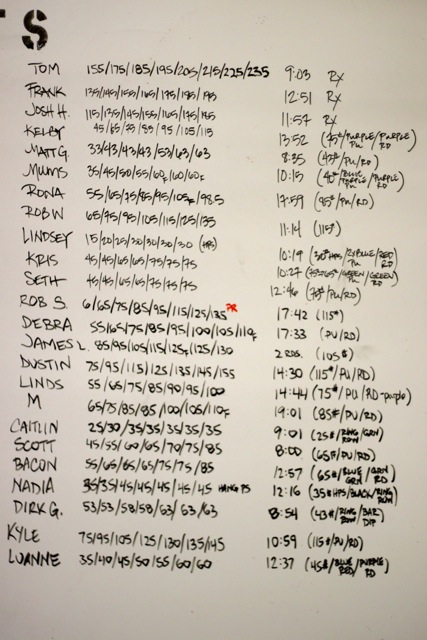 S
TOM 155/175/185/195/205/215/225/235 9:03 Rx
FRANK 135/145/155/165/175/185/195 12:51 Rx
JOSH H. 115/135/145/155/165/175/185 11:57 Rx
KELBY 45/65/75/85/95/105/115 13:52 (95#/PURPLE PU/PURPLE RD)
MATT G. 33/43/43/43/53/63/63 8:35 (43#/PU/RD)
MUMS 35/45/50/55/60F/60/60F 10:15
RONA 55/65/75/85/95/105F/98.5 17:59 (95#/PU/RD)
ROB W 65/75/95/105/115/125/135 11:14 (115#)
LINDSEY 15/20/25/30/30/30/30 (HPS) 10:19 (30#HPS/
KRIS 45/45/65/65/75/75/75 10:27
SETH 45/45/65/65/75/75/75 12:46 (75#/PU/RD)
ROB S. 6/65/75/85/95/115/125/135 PR 17:42 (115#)
DEBRA 55/65/75/85/95/100/105/110F 17:33 (PU/RD)
JAMES L. 85/95/105/115/125F/125/130 2 RDS. (105#)
DUSTIN 75/95/115/125/135/145/155 14:30 (115#/PU/RD)
LINDS 55/65/75/85/90/95/100 14:44 (75#/PU/RD-purple)
M 65/75/85/85/100/105/110F 19:01 (85#/PU/RD)
CAITLIN 25/30/35/35/35/35/35 9:01 (25#/RING ROW/GRN RD)
SCOTT 45/55/60/65/70/75/85 8:00 (65#/PU/RD)
BACON 55/65/65/65/75/75/85 12:57 (65#/BLUE GRN/GRN RD)
NADIA 35/35/45/45/45/45/45 HANG PS 12:16 (35#HPS/BLACK/RING ROW)
DIRK G. 53/53/58/58/63/63/63 8:54 (43#/RING ROW/BAR DIP)
KYLE 75/95/105/125/130/135/145 10:59 (115#/PU/RD)
LUANNE 35/40/45/50/55/60/60 12:37 (45#/BLUE RED/PURPLE RD)